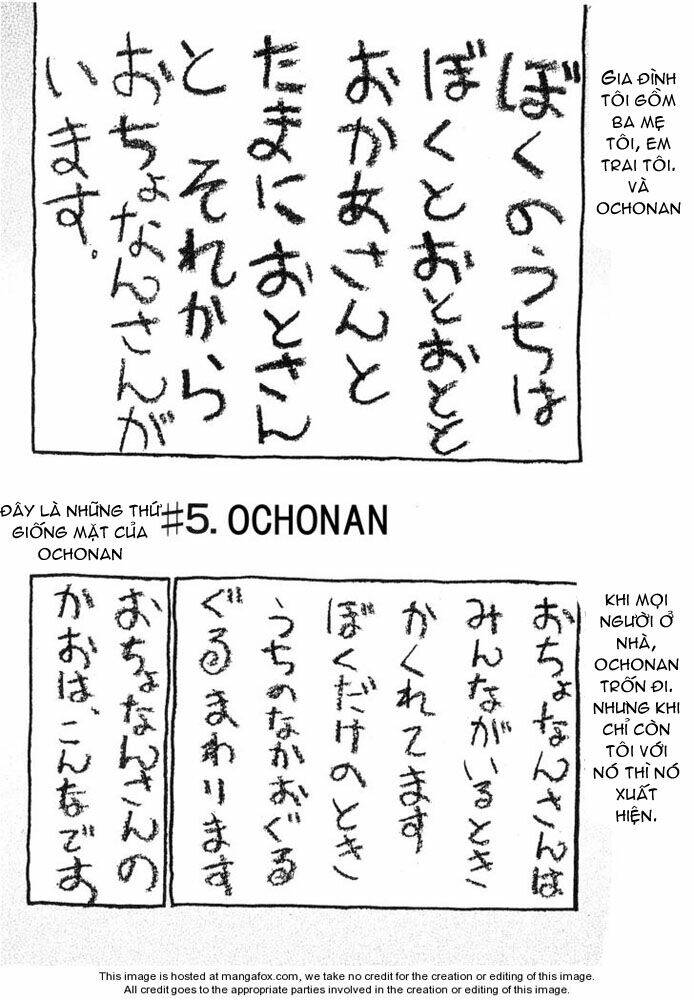 ぼくのうちは
ぼくとおとおとと
おかあさんと
たまにおとさん
と それから
おちょなんさんが
います。
GIA ĐÌNH
TÔI GỒM
BA MẸ
TÔI, EM
TRAI TÔI.
VÀ
OCHONAN
ĐÂY LÀ NHỮNG THỨ
GIỐNG MẶT CỦA
OCHONAN
#5. OCHONAN
おちょなんさんは
みんながいるとき
かくれてます
ぼくだけのとき
うちのなかおぐる
ぐるまわります
KHI MỌI
NGƯỜI Ở
NHÀ,
OCHONAN
TRỐN ĐI.
NHƯNG KHI
CHỈ CÒN
TÔI VỚI
NÓ THÌ NÓ
XUẤT
HIỆN.
おちょなんさんの
かおは、こんなです
This image is hosted at mangafox.com, we take no credit for the creation or editing of this image.
All credit goes to the appropriate parties involved in the creation or editing of this image.